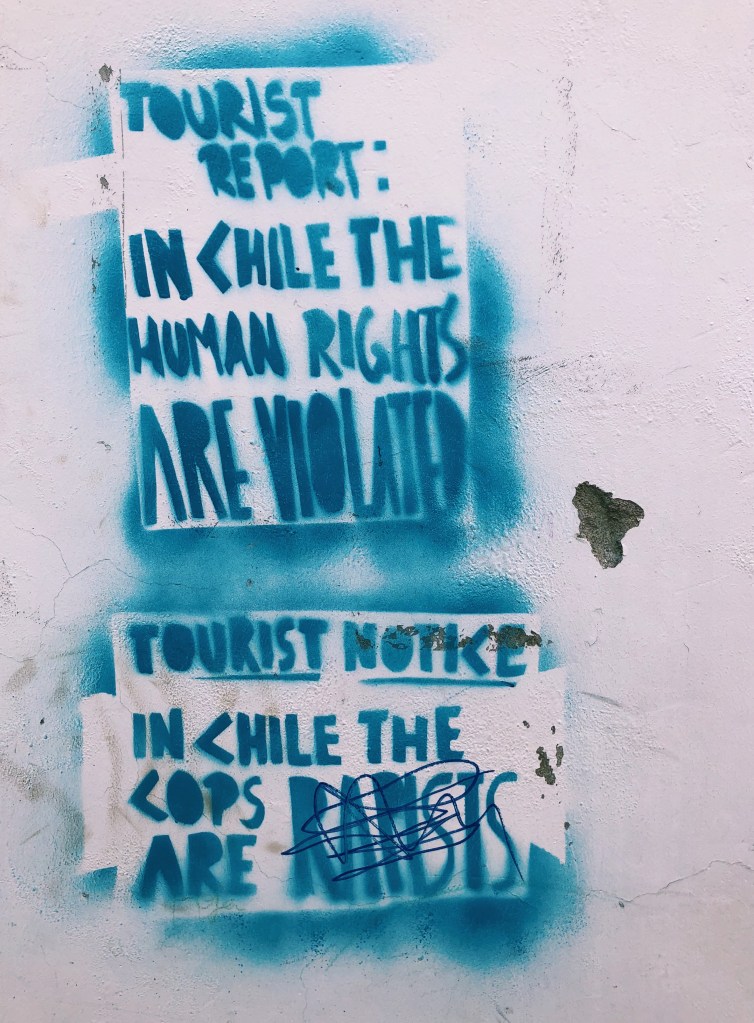 TOURIST
REPORT:
IN CHILE THE
HUMAN RIGHTS
ARE VIOLATED
TOURIST NOTICE
IN CHILE THE
COPS RAPISTS
ARE